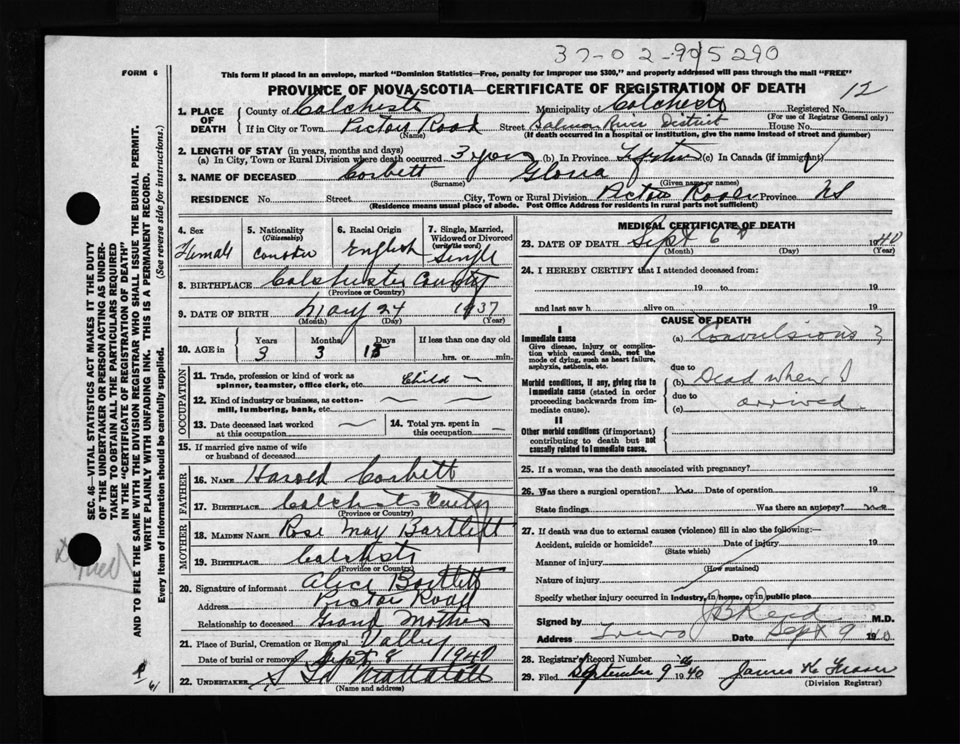 37-02-90 5290
FORM 6
This form if placed in an envelope, marked "Dominion Statistics—Free, penalty for improper use $300," and properly addressed will pass through the mail "FREE"
PROVINCE OF NOVA SCOTIA—CERTIFICATE OF REGISTRATION OF DEATH 12
1. PLACE OF DEATH
County of Colchester Municipality of Colchester Registered No.
(For use of Registrar General only)
If in City or Town Pictou Road Street Salmon River District House No.
(Name) (If death occurred in a hospital or institution, give the name instead of street and number)
2. LENGTH OF STAY (in years, months and days)
(a) In City, Town or Rural Division where death occurred 3 years (b) In Province Lifetime (c) In Canada (if immigrant)
3. NAME OF DECEASED Corbett Gloria
(Surname) (Given name or names)
RESIDENCE No. Street City, Town or Rural Division Pictou Road Province NS
(Residence means usual place of abode. Post Office Address for residents in rural parts not sufficient)
4. Sex Female
5. Nationality (Citizenship)
6. Racial Origin English
7. Single, Married, Widowed or Divorced (write the word) Single
8. BIRTHPLACE Colchester County
(Province or Country)
9. DATE OF BIRTH May 24 1937
(Month) (Day) (Year)
10. AGE in Years Months Days If less than one day old
3 3 hrs. or min.
OCCUPATION
11. Trade, profession or kind of work as spinner, teamster, office clerk, etc. Child —
12. Kind of industry or business, as cotton-mill, lumbering, bank, etc. —
13. Date deceased last worked at this occupation — 14. Total yrs. spent in this occupation —
15. If married give name of wife or husband of deceased
FATHER
16. NAME Harold Corbett
17. BIRTHPLACE Colchester County
(Province or Country)
MOTHER
18. MAIDEN NAME Rose May Bartlett
19. BIRTHPLACE Colchester
(Province or Country)
20. Signature of informant Alice Bartlett
Address Pictou Road
Relationship to deceased Grand Mother
21. Place of Burial, Cremation or Removal Valley
Date of burial or removal Sept 8 1940
22. UNDERTAKER Mattatall
(Name and address)
MEDICAL CERTIFICATE OF DEATH
23. DATE OF DEATH Sept 6th 1940
(Month) (Day) (Year)
24. I HEREBY CERTIFY that I attended deceased from:
19 to 19
and last saw h alive on 19
CAUSE OF DEATH
I
Immediate cause
Give disease, injury or complication which caused death, not the mode of dying, such as heart failure, asphyxia, asthenia, etc.
(a) Convulsions ?
due to
Morbid conditions, if any, giving rise to immediate cause (stated in order proceeding backwards from immediate cause).
(b) Dead when I
due to
(c) arrived
II
Other morbid conditions (if important) contributing to death but not causally related to immediate cause.
25. If a woman, was the death associated with pregnancy?
26. Was there a surgical operation? no Date of operation 19
State findings Was there an autopsy? no
27. If death was due to external causes (violence) fill in also the following:—
Accident, suicide or homicide? Date of injury 19
(State which)
Manner of injury
(How sustained)
Nature of injury
Specify whether injury occurred in industry, in home, or in public place
Signed by J B Reid M.D.
Address Truro Date Sept 9 1940
28. Registrar's Record Number
29. Filed September 9 1940 James K Fraser
(Division Registrar)
SEC. 46—VITAL STATISTICS ACT MAKES IT THE DUTY OF THE UNDERTAKER OR PERSON ACTING AS UNDERTAKER TO OBTAIN ALL THE PARTICULARS REQUIRED IN THE "CERTIFICATE OF REGISTRATION OF DEATH" AND TO FILE THE SAME WITH THE DIVISION REGISTRAR WHO SHALL ISSUE THE BURIAL PERMIT.
WRITE PLAINLY WITH UNFADING INK. THIS IS A PERMANENT RECORD.
Every item of information should be carefully supplied. (See reverse side for instructions.)